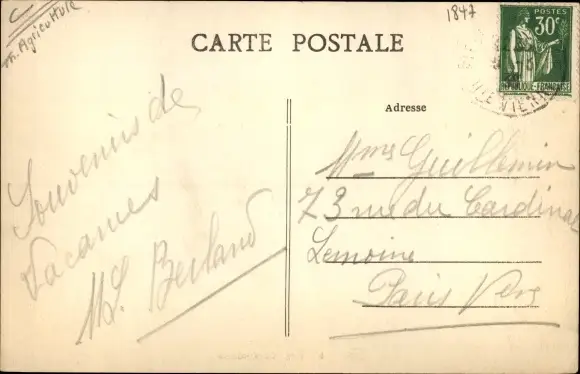 C
Th. Agriculture
1847
POSTES
30c
RÉPUBLIQUE FRANÇAISE
CARTE POSTALE
Adresse
Souvenirs de
Vacances
ML. Berland
Mmes Guillemin
73 rue du Cardinal
Lemoine
Paris Vème